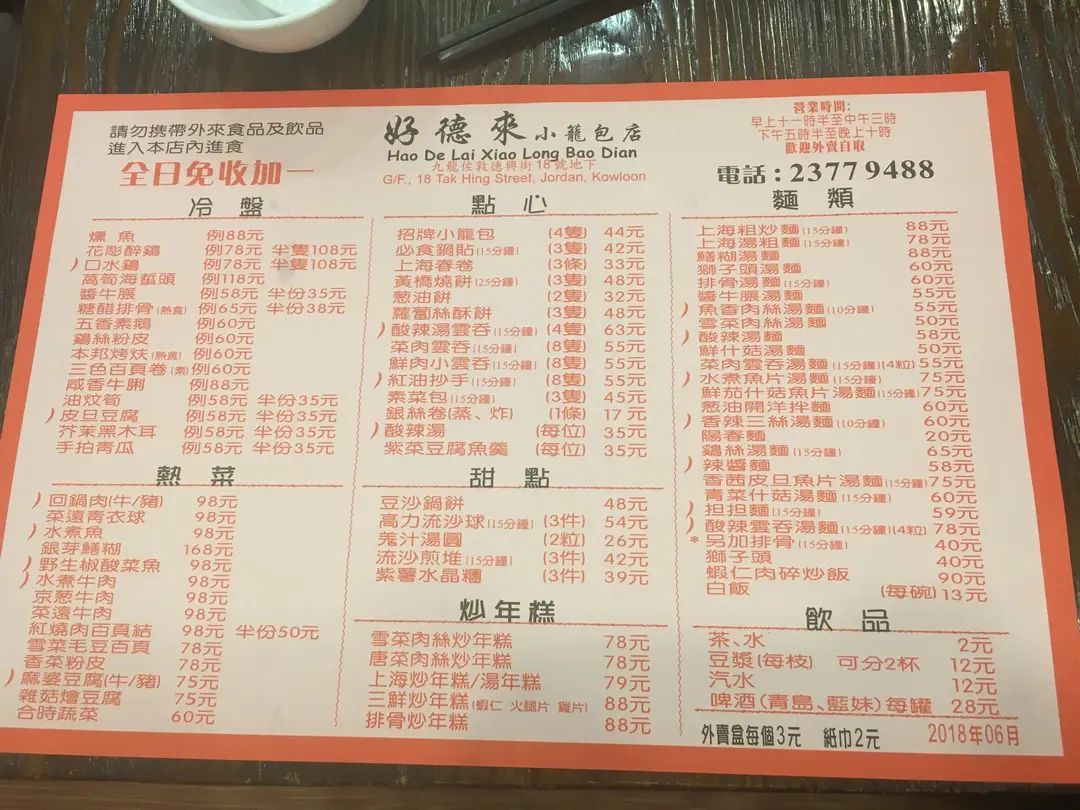 請勿攜帶外來食品及飲品
進入本店內進食
全日免收加一
好德來小籠包店
Hao De Lai Xiao Long Bao Dian
九龍佐敦德興街18號地下
G/F., 18 Tak Hing Street, Jordan, Kowloon
營業時間:
早上十一時半至中午三時
下午五時半至晚上十時
歡迎外賣自取
電話:2377 9488
冷盤
燻魚 例88元
花彫醉鷄 例78元 半隻108元
)口水鷄 例78元 半隻108元
萵筍海蜇頭 例118元
醬牛𦟌 例58元 半份35元
糖醋排骨(熱食) 例65元 半份38元
五香素鵝 例60元
鷄絲粉皮 例60元
本邦烤麩(熱食) 例60元
三色百頁卷(素)例60元
咸香牛脷 例88元
油炆筍 例58元 半份35元
)皮旦豆腐 例58元 半份35元
芥茉黑木耳 例58元 半份35元
手拍青瓜 例58元 半份35元
熱菜
)回鍋肉(牛/豬) 98元
菜遠青衣球 98元
)水煮魚 98元
銀芽鱔糊 168元
)野生椒酸菜魚 98元
)水煮牛肉 98元
京葱牛肉 98元
菜遠牛肉 98元
紅燒肉百頁結 98元 半份50元
雪菜毛豆百頁 78元
香菜粉皮 78元
)麻婆豆腐(牛/豬) 75元
雜菇燴豆腐 75元
合時蔬菜 60元
點心
招牌小籠包 (4隻) 44元
必食鍋貼(15分鐘) (3隻) 42元
上海春卷 (3條) 33元
黃橋燒餅(25分鐘) (3隻) 48元
葱油餅 (2隻) 32元
蘿蔔絲酥餅 (3隻) 48元
)酸辣湯雲吞(15分鐘) (4隻) 63元
菜肉雲吞(15分鐘) (8隻) 55元
鮮肉小雲吞(15分鐘) (8隻) 55元
)紅油抄手(15分鐘) (8隻) 55元
素菜包(15分鐘) (3隻) 45元
銀絲卷(蒸、炸) (1條) 17元
)酸辣湯 (每位) 35元
紫菜豆腐魚羹 (每位) 35元
甜點
豆沙鍋餅 48元
高力流沙球(15分鐘) (3件) 54元
羗汁湯圓 (2粒) 26元
流沙煎堆(15分鐘) (3件) 42元
紫薯水晶糰 (3件) 39元
炒年糕
雪菜肉絲炒年糕 78元
唐菜肉絲炒年糕 78元
上海炒年糕/湯年糕 79元
三鮮炒年糕(蝦仁 火腿片 雞片) 88元
排骨炒年糕 88元
麵類
上海粗炒麵(15分鐘) 88元
上海湯粗麵(15分鐘) 78元
鱔糊湯麵 88元
獅子頭湯麵 60元
排骨湯麵(15分鐘) 60元
醬牛𦟌湯麵 55元
)魚香肉絲湯麵(10分鐘) 55元
雪菜肉絲湯麵 50元
)酸辣湯麵 58元
鮮什菇湯麵 50元
菜肉雲吞湯麵(15分鐘)(4粒) 55元
)水煮魚片湯麵(15分鐘) 75元
鮮茄什菇魚片湯麵(15分鐘)75元
葱油開洋拌麵 60元
)香辣三絲湯麵(10分鐘) 60元
陽春麵 20元
鷄絲湯麵(15分鐘) 65元
)辣醬麵 58元
香茜皮旦魚片湯麵(15分鐘)75元
青菜什菇湯麵(15分鐘) 60元
)担担麵(15分鐘) 59元
)酸辣雲吞湯麵(15分鐘)(4粒) 78元
*另加排骨(15分鐘) 40元
獅子頭 40元
蝦仁肉碎炒飯 90元
白飯 (每碗)13元
飲品
茶、水 2元
豆漿(每枝) 可分2杯 12元
汽水 12元
啤酒(青島、藍妹)每罐 28元
外賣盒每個3元 紙巾2元 2018年06月